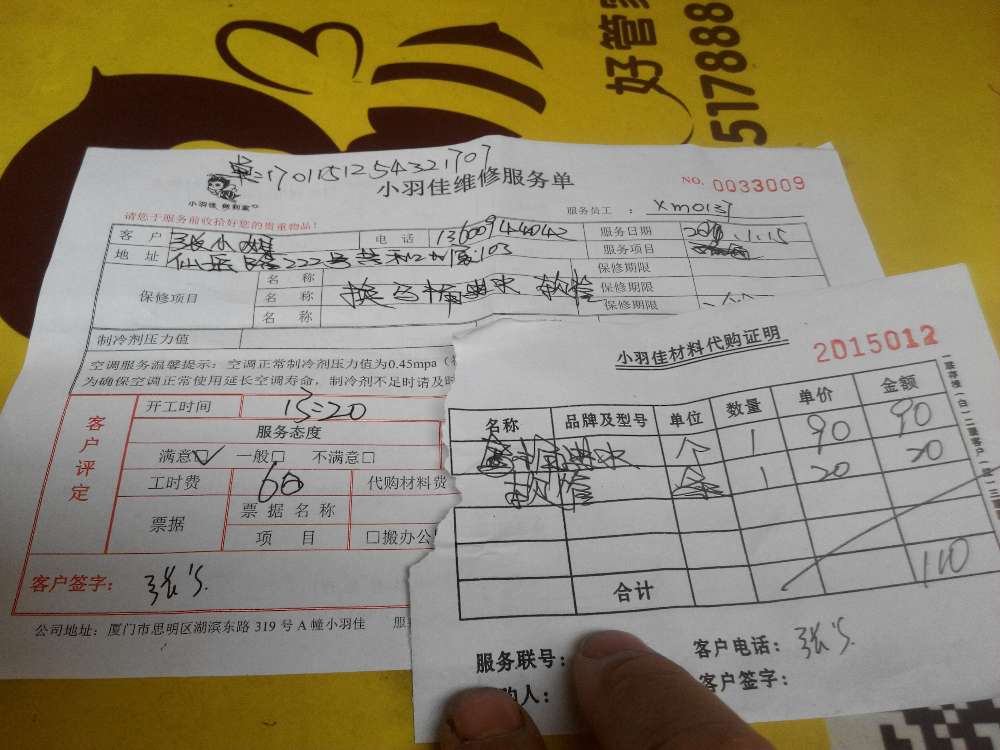 好管家
517888
单:17011512543217 07
小羽佳 做到家
小羽佳维修服务单
NO. 0033009
请您于服务前收拾好您的贵重物品!
服务员工: xm0137
客户 张小姐 电话 13600944042 服务日期
地址 222号 103 服务项目
保修项目 名称 保修期限
名称 换马桶进水 软管 保修期限
名称 保修期限
制冷剂压力值
空调服务温馨提示:空调正常制冷剂压力值为0.45mpa
为确保空调正常使用延长空调寿命,制冷剂不足时请及时
客户评定
开工时间 13:20
服务态度
满意☑ 一般□ 不满意□
工时费 60 代购材料费
票据 票据名称
项目 □搬办公
客户签字: 张'S
公司地址:厦门市思明区湖滨东路 319 号 A 幢小羽佳
小羽佳材料代购证明
2015012
名称 品牌及型号 单位 数量 单价 金额
个 1 90 90
软管 1 20 20
合计 110
服务联号: 客户电话: 张'S
购人: 客户签字: